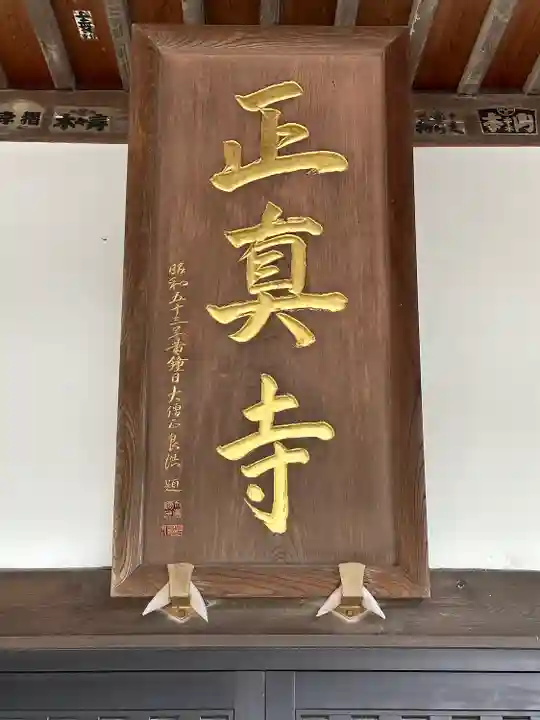 正真寺
昭和五十三年黄鐘日大僧正良洪題